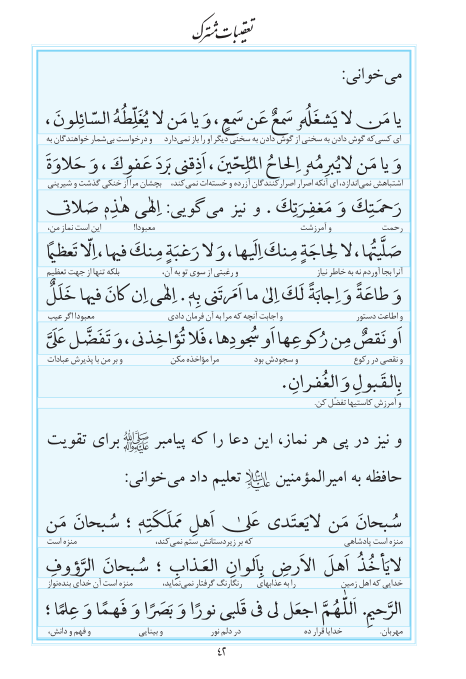 تعقیبات مشترک
می‌خوانی:
یا مَن لا یَشغَلُهُ سَمعٌ عَن سَمعٍ، وَ یا مَن لا یُغَلِّطُهُ السّائِلونَ،
ای کسی که گوش دادن به سخنی از گوش دادن به سخنی دیگر او را باز نمی‌دارد و درخواست بی‌شمار خواهندگان به
وَ یا مَن لا یُبرِمُهُ اِلحاحُ المُلِحّینَ، اَذِقنی بَردَ عَفوِکَ، وَ حَلاوَةَ
اشتباهش نمی‌اندازد، ای آنکه اصرار اصرارکنندگان آزرده و خسته‌ات نمی‌کند، بچشان مرا از خنکی گذشت و شیرینی
رَحمَتِکَ وَ مَغفِرَتِکَ. و نیز می‌گویی: اِلٰهی هٰذِهِ صَلاتی
رحمت و آمرزشت معبودا! این است نماز من،
صَلَّیتُها، لا لِحاجَةٍ مِنکَ اِلَیها، وَ لا رَغبَةٍ مِنکَ فیها، اِلّا تَعظیمًا
آنرا بجا آوردم نه به خاطر نیاز و رغبتی از سوی تو به آن، بلکه تنها از جهت تعظیم
وَ طاعَةً وَ اِجابَةً لَکَ اِلیٰ ما اَمَرتَنی بِهِ. اِلٰهی اِن کانَ فیها خَلَلٌ
و اطاعت دستور و اجابت آنچه که مرا به آن فرمان دادی معبودا اگر عیب
اَو نَقصٌ مِن رُکوعِها اَو سُجودِها، فَلا تُؤاخِذنی، وَ تَفَضَّل عَلَیَّ
و نقصی در رکوع و سجودش بود مرا مؤاخذه مکن و بر من با پذیرش عبادات
بِالقَبولِ وَ الغُفرانِ.
و آمرزش کاستیها تفضّل کن.
و نیز در پی هر نماز، این دعا را که پیامبر ﷺ برای تقویت
حافظه به امیرالمؤمنین علیه‌السلام تعلیم داد می‌خوانی:
سُبحانَ مَن لا یَعتَدی عَلیٰ اَهلِ مَملَکَتِهِ؛ سُبحانَ مَن
منزه است پادشاهی که بر زیردستانش ستم نمی‌کند، منزه است
لا یَأخُذُ اَهلَ الاَرضِ بِاَلوانِ العَذابِ؛ سُبحانَ الرَّؤوفِ
خدایی که اهل زمین را به عذابهای رنگارنگ گرفتار نمی‌نماید، منزه است آن خدای بنده‌نواز
الرَّحیمِ. اَللّٰهُمَّ اجعَل لی فی قَلبی نورًا وَ بَصَرًا وَ فَهمًا وَ عِلمًا؛
مهربان. خدایا قرار ده در دلم نور و بینایی و فهم و دانش،
۴۲